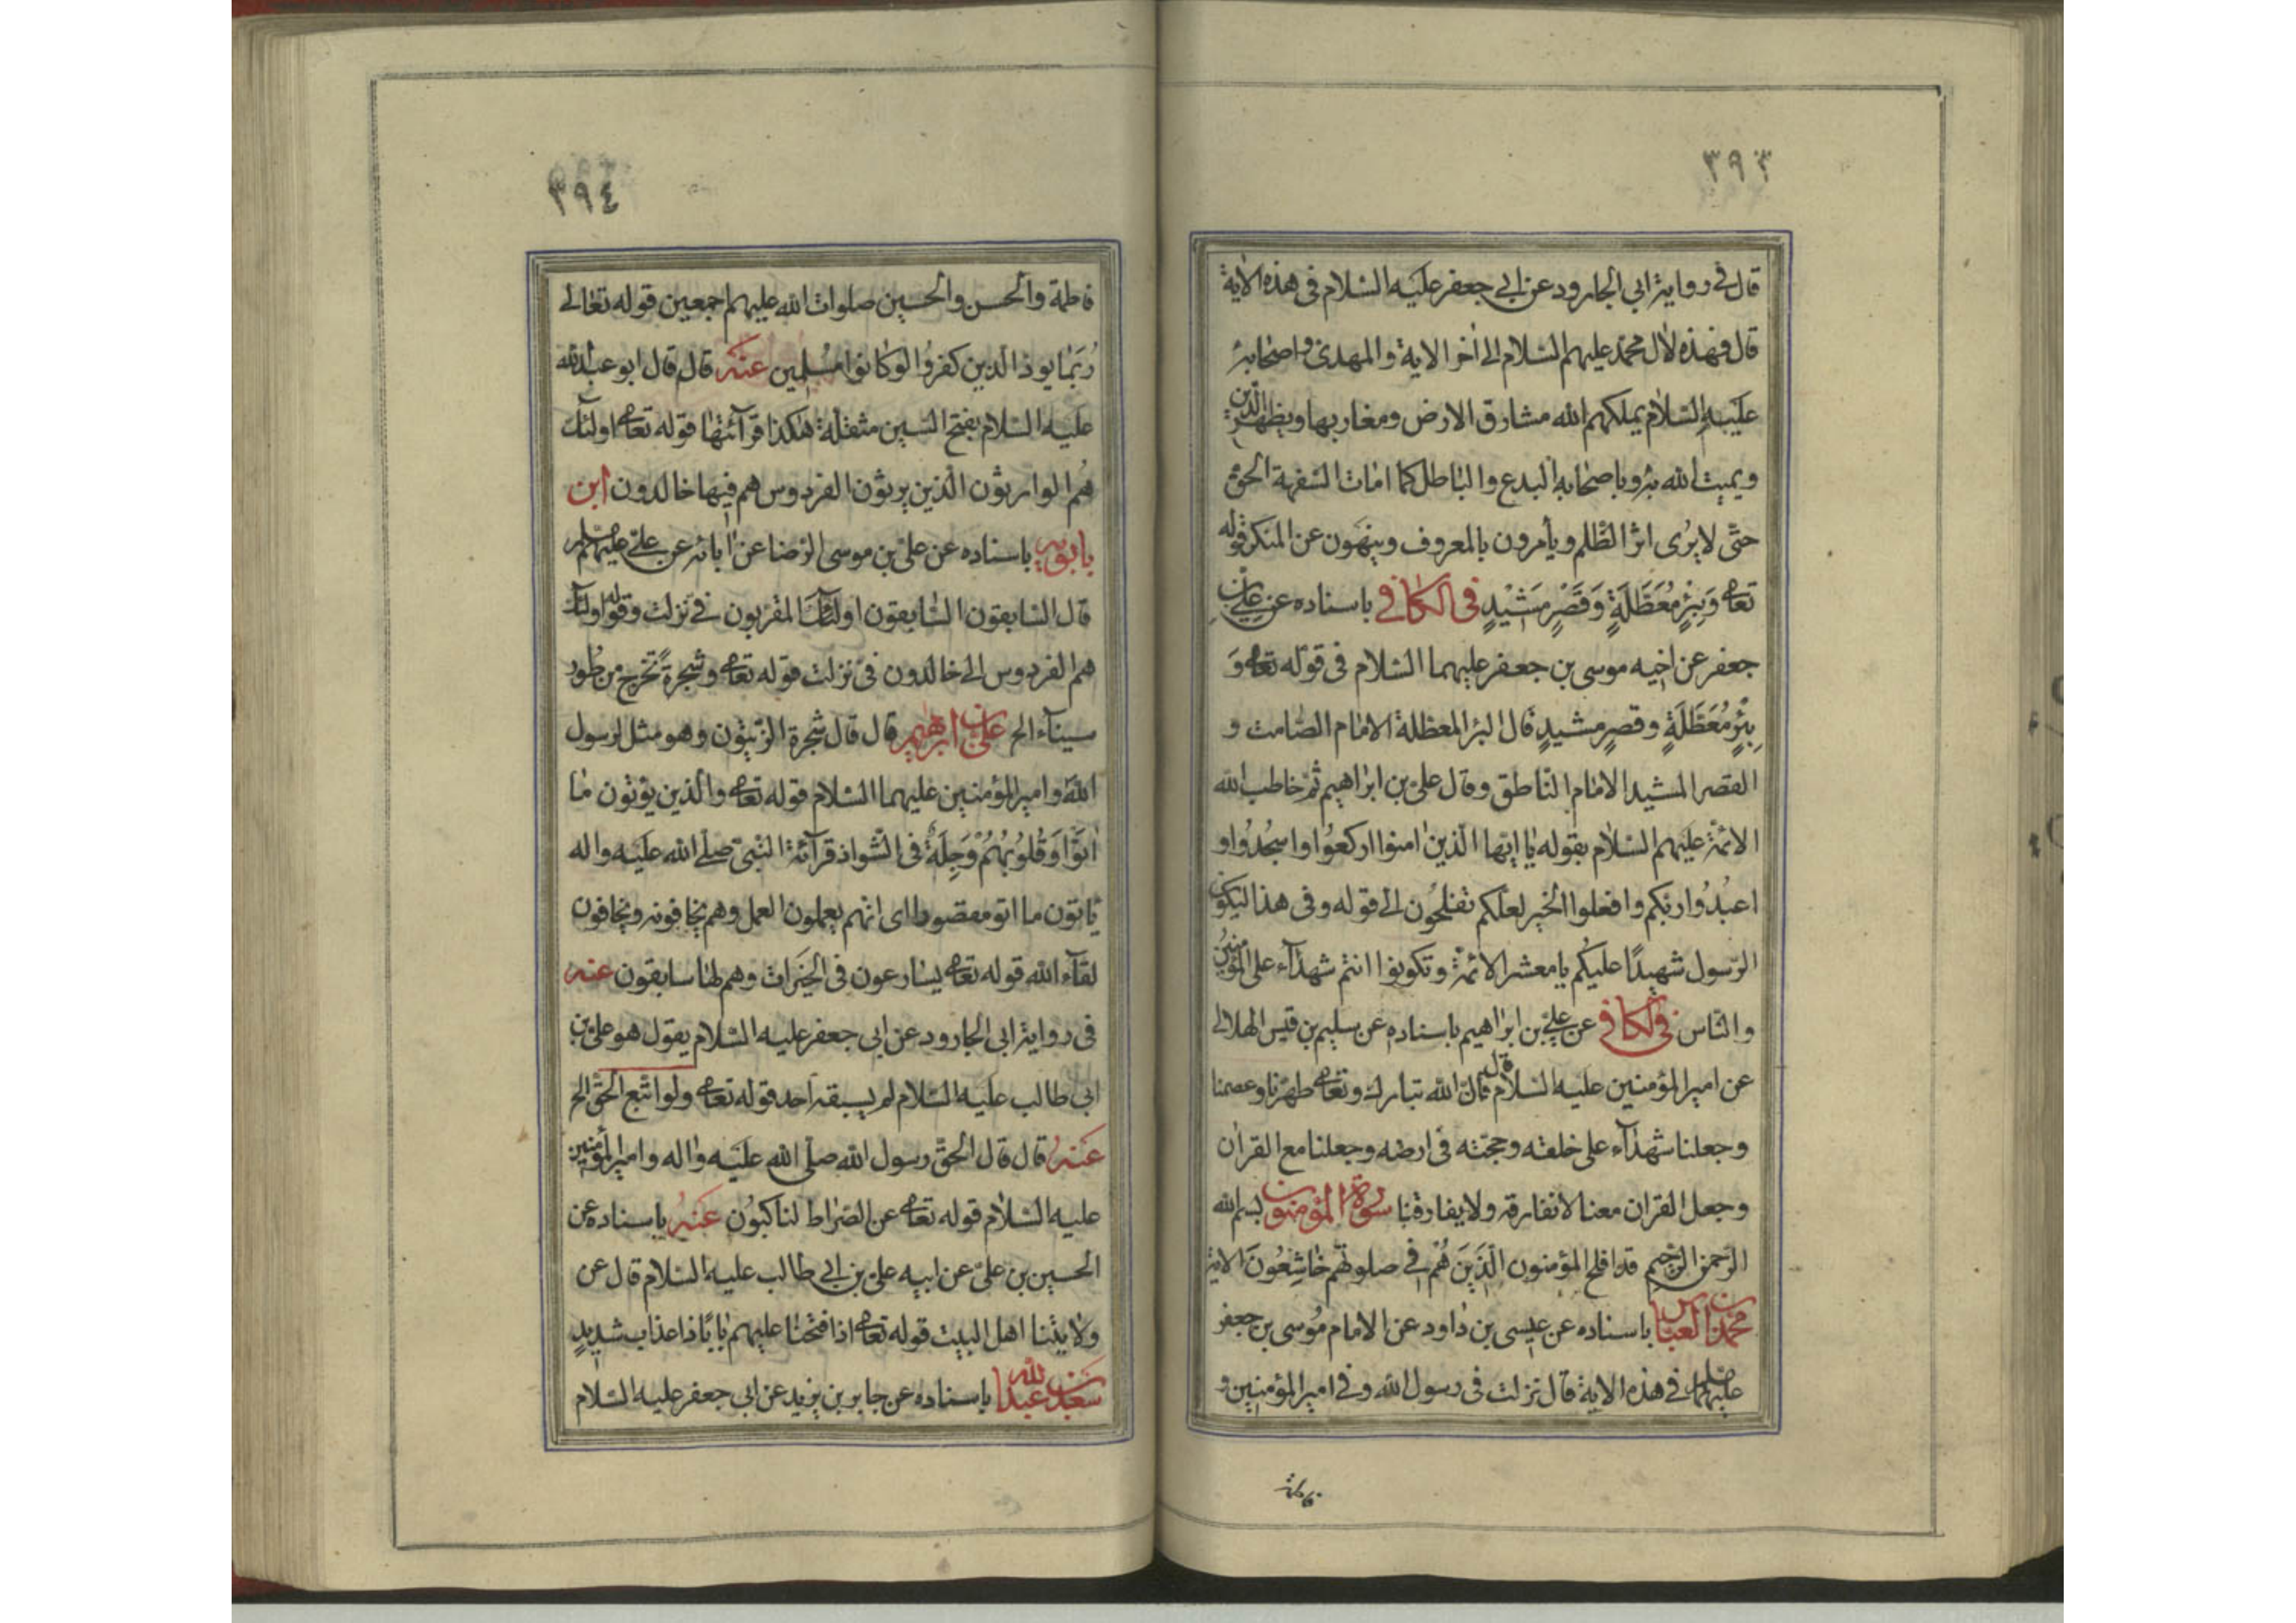 ٣٩٣
قال فى رواية ابى الجارود عن ابى جعفر عليه السلام فى هذه الاية
قال فهذه لآل محمد عليهم السلام الى اخر الاية والمهدى واصحابه
عليه السلام يملكهم الله مشارق الارض ومغاربها ويظهر الدين
ويميت الله به وباصحابه البدع والباطل كما امات السفهة الحق
حتى لا يرى اثر الظلم ويأمرون بالمعروف وينهون عن المنكر قوله
تعالى وَبِئْرٍ مُعَطَّلَةٍ وَقَصْرٍ مَشِيْدٍ فى الكافى باسناده عن على بن
جعفر عن اخيه موسى بن جعفر عليهما السلام فى قوله تعالى وَ
بِئْرٍ مُعَطَّلَةٍ وقصرٍ مشيدٍ قال البئر المعطلة الامام الصامت و
القصر المشيد الامام الناطق وقال على بن ابراهيم ثم خاطب الله
الائمة عليهم السلام بقوله يا ايها الذين امنوا اركعوا واسجُدُوا و
اعبُدُوا ربكم وافعلوا الخير لعلكم تفلحون الى قوله وفى هذا ليكون
الرسول شهيدًا عليكم يا معشر الائمة وتكونوا انتم شهدآء على المؤمنين
والناس فى الكافى عن على بن ابراهيم باسناده عن سليم بن قيس الهلالى
عن امير المؤمنين عليه السلام قال ان الله تبارك وتعالى طهرنا وعصمنا
وجعلنا شهدآء على خلقه وحجته فى ارضه وجعلنا مع القران
وجعل القران معنا لا نفارقه ولا يفارقنا سورة المؤمنون بسم الله
الرحمن الرحيم قد افلح المؤمنون الَّذِيَنَ هُمْ فى صلوتهم خَاشِعُونَ الاية
محمد بن العباس باسناده عن عيسى بن داود عن الامام موسى بن جعفر
عليهما السلام فى هذه الاية قال نزلت فى رسول الله وفى امير المؤمنين و
٣٩٤
فاطمة والحسن والحسين صلوات الله عليهم اجمعين قوله تعالى
رُبَمَا يود الذين كفرُوا لو كانوا مسُلمين عنه قال قال ابو عبدالله
عليه السلام بفتح السين مثقلة هكذا قرآئتها قوله تعالى اولئك
هُم الوارثون الذين يرثون الفردوس هم فيها خالدون ابن
بابويه باسناده عن على بن موسى الرضا عن ابائه عن على عليهم السلام
قال السابقون السابقون اولئك المقربون فىَّ نزلت وقوله اولئك
هم الفردوس الى خالدون فىَّ نزلت قوله تعالى وشجرة تخرج من طُور
سيناء الخ على بن ابرهيم قال قال شجرة الزيتون وهو مثل لرسول
الله وامير المؤمنين عليهما السلام قوله تعالى والذين يؤتون ما
اتَوَّا وَقُلُوبُهُمْ وَجِلَةٌ فى الشواذ قرآئة النبى صلى الله عليه واله
يأتون ما اتو مقصودا اى انهم يعملون العمل وهم يخافونه ويخافون
لقآء الله قوله تعالى يسارعون فى الخيرات وهم لها سابقون عنه
فى رواية ابى الجارود عن ابى جعفر عليه السلام يقول هو على بن
ابى طالب عليه السلام لم يسبقه احد قوله تعالى ولو اتبع الحق الخ
عنه قال قال الحق رسول الله صلى الله عليه واله وامير المؤمنين
عليه السلام قوله تعالى عن الصراط لناكبُون عنه باسناده عن
الحسين بن على عن ابيه على بن ابى طالب عليه السلام قال عن
ولايتنا اهل البيت قوله تعالى اذا فتحنا عليهم بابًا ذا عذاب شديدٍ
سعد بن عبد الله باسناده عن جابر بن يزيد عن ابى جعفر عليه السلام